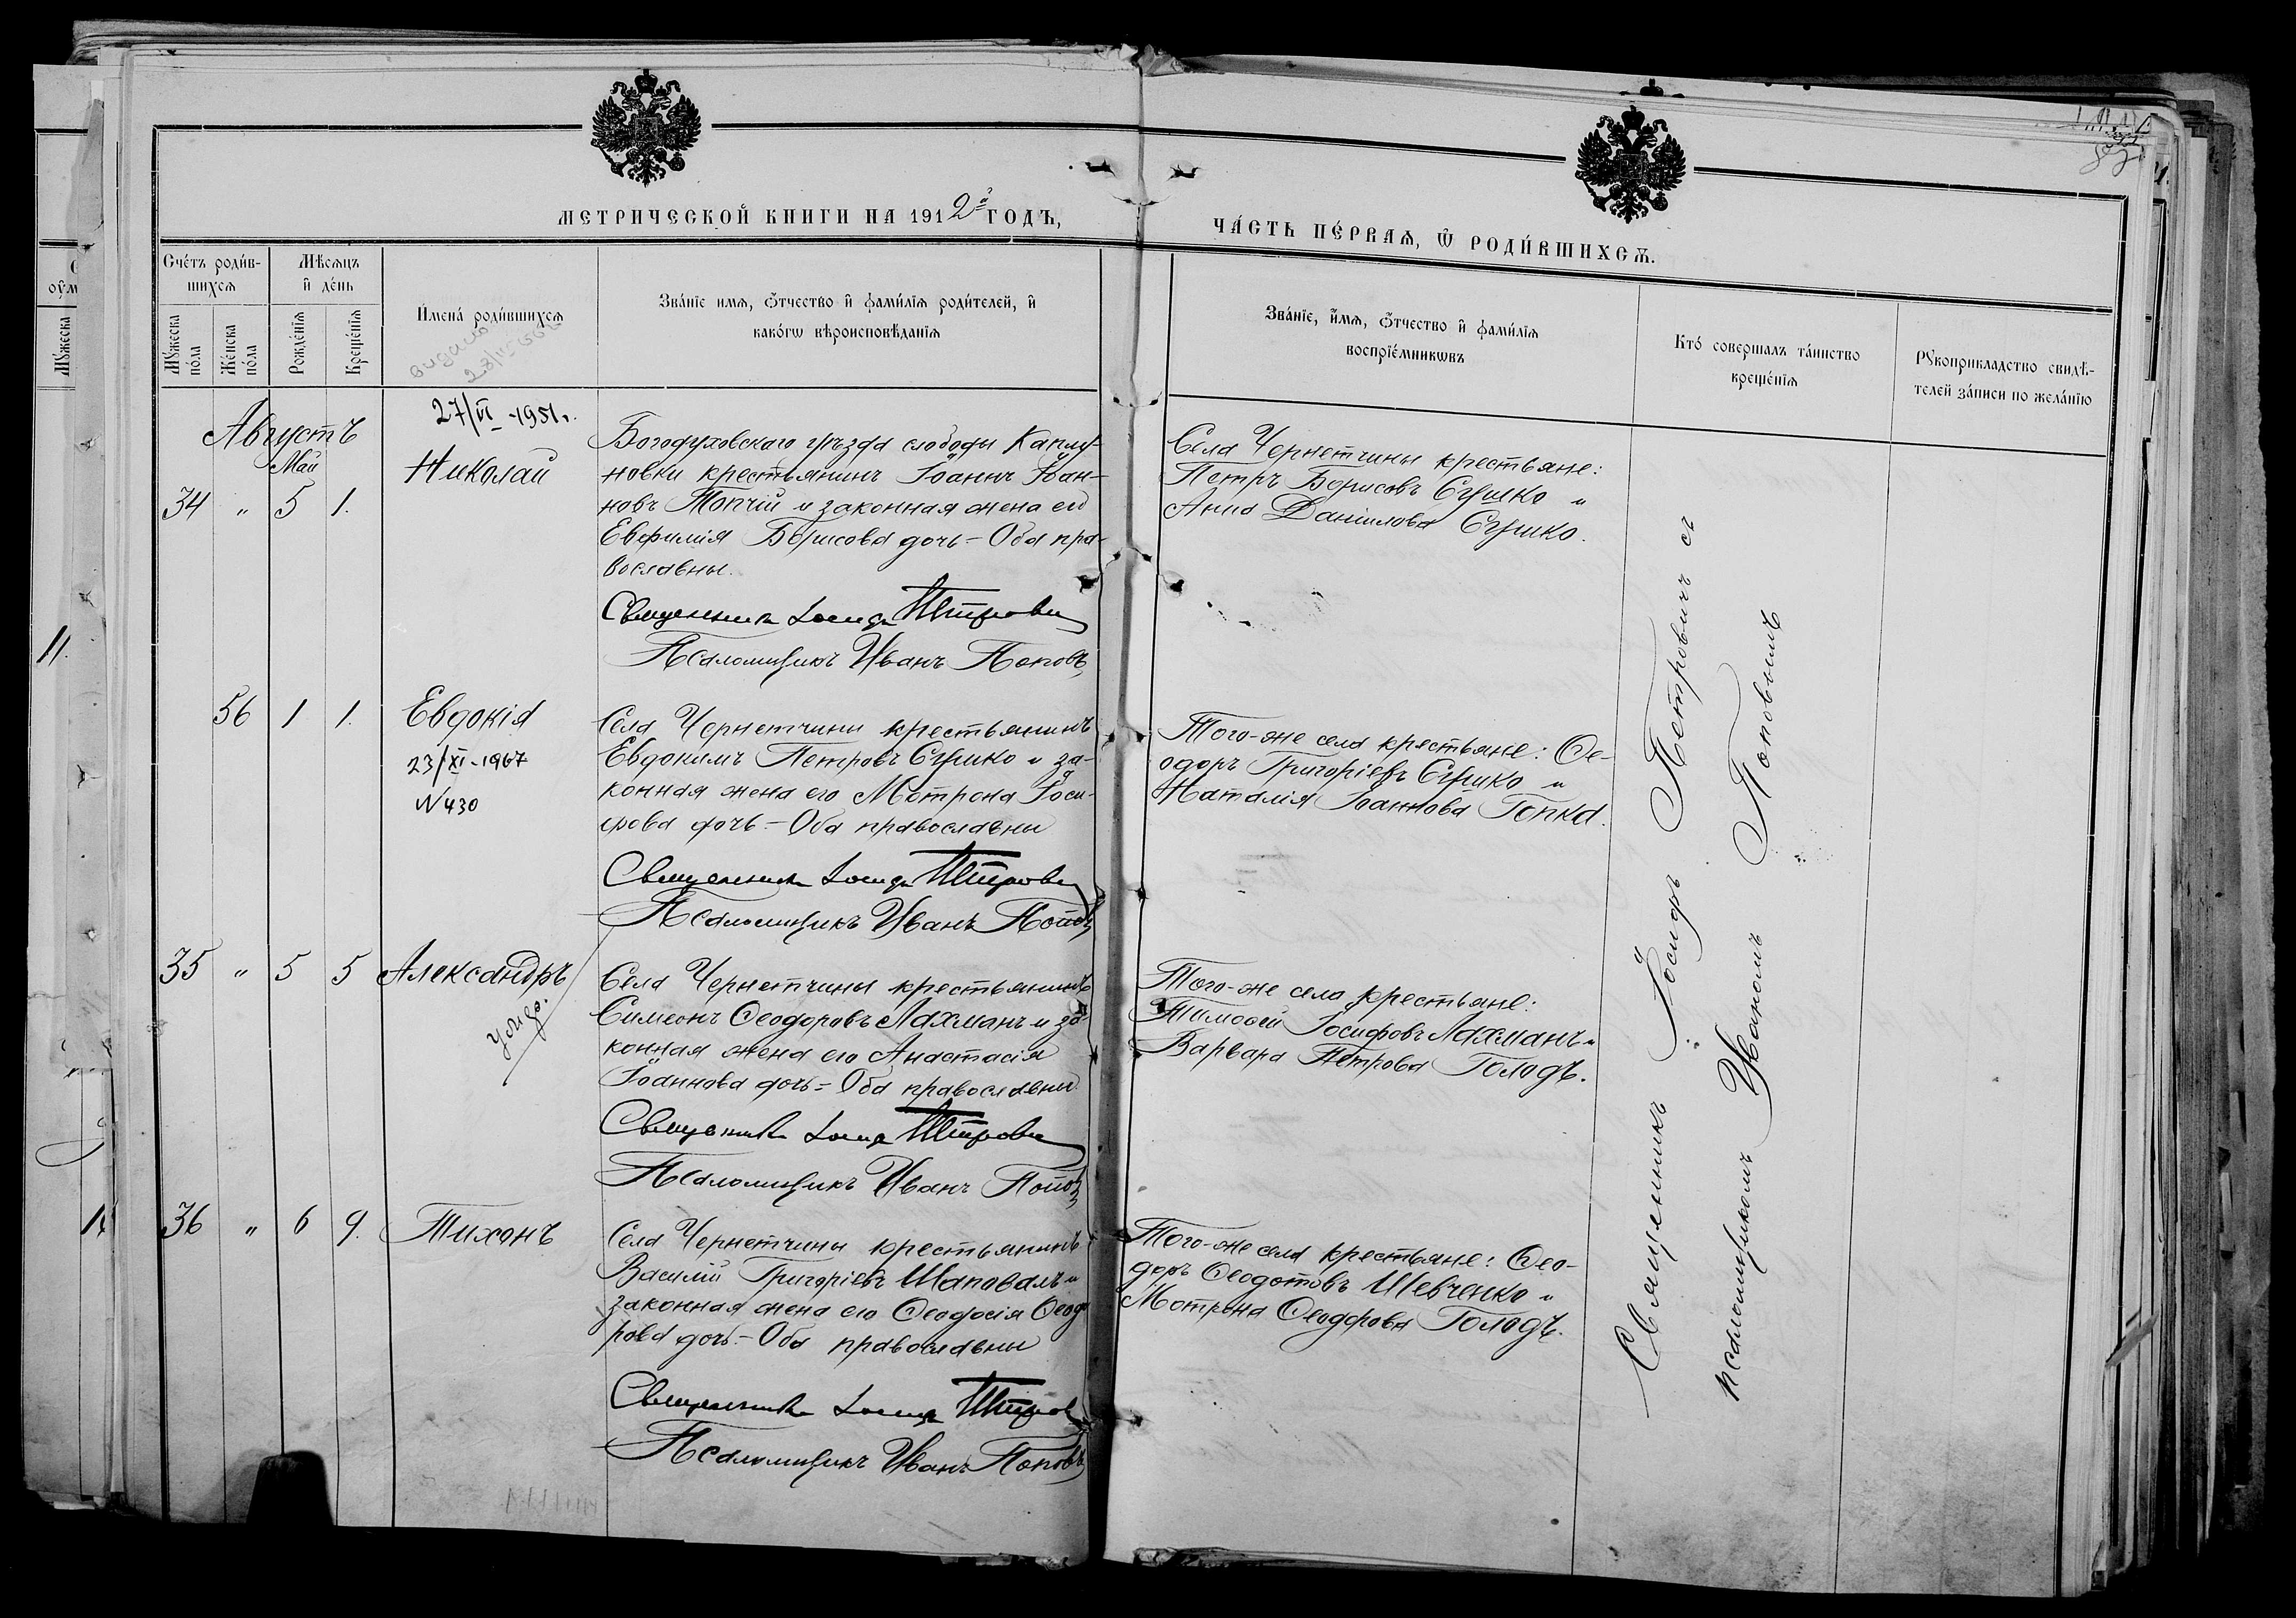 МЕТРИЧЕСКОЙ КНИГИ НА 1912й ГОДЪ,
ЧА́СТЬ ПЕ́РВАЯ, Ѽ РОДИ́ВШИХСѦ.
Счéтъ роди́в-
шихсѧ
Мꙋ́жеска
по́ла
Же́нска
по́ла
Мѣ́сѧцъ
и҆ де́нь
Рожде́нїѧ
Креще́нїѧ
И҆мена́ роди́вшихсѧ
Зва́нїе имѧ, ѻ҆́тчество и҆ фами́лїѧ роди́телей, и҆
како́гѡ вѣроисповѣ́данїѧ
Зва́нїе, и҆́мѧ, ѻ҆́тчество и҆ фами́лїѧ
воспрїе́мникѡвъ
Кто́ совершалъ та́инство
креще́нїѧ
Рꙋкоприкладство свидѣ́-
телей за́писи по жела́нїю
Августъ
27/VI -1951г.
Май
34 " 5 1.
Николай
Богодуховскаго уѣзда слободы Каплу-
новки крестьянинъ Іоаннъ Іоан-
новъ Топчій и законная жена его
Евфимія Борисова дочь - Оба пра-
вославны.
Священникъ Іосифъ Петрович
Псаломщикъ Иванъ Поповъ
Села Чернетчины крестьяне:
Петръ Борисовъ Сушко и
Анна Даніилова Сушко.
56 1 1.
Евдокія
23/XI-1967
N430
Села Чернетчины крестьянинъ
Евдокимъ Петровъ Сушко и за-
конная жена его Мотрона Іоси-
фова дочь - Оба православны
Священникъ Іосифъ Петрович
Псаломщикъ Иванъ Поповъ
Того-же села крестьяне: Ѳе-
одоръ Григоріевъ Сушко и
Наталія Іоаннова Гопка.
35 " 5 5
Александръ
Села Чернетчины крестьянинъ
Симеонъ Ѳеодоровъ Лахманъ и за-
конная жена его Анастасія
Іоаннова дочь - Оба православны
Священникъ Іосифъ Петрович
Псаломщикъ Иванъ Поповъ
Того-же села крестьяне:
Тимоѳей Іосифовъ Лахманъ и
Варвара Петрова Голодъ.
36 " 6 9.
Тихонъ
Села Чернетчины крестьянинъ
Василій Григоріевъ Шаповалъ и
законная жена его Ѳеодосія Ѳеодо
рова дочь - Оба православны
Священникъ Іосифъ Петрович
Псаломщикъ Иванъ Поповъ
Того-же села крестьяне: Ѳео-
доръ Ѳеодотовъ Шевченко и
Мотрона Ѳеодорова Голодъ.
Священникъ Іосифъ Петровичъ съ
псаломщикомъ Иваномъ Поповымъ